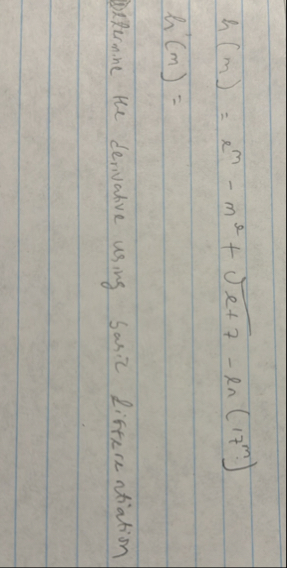 h(m) = e^m - m^e + √(e+7) - ln(17^m)
h'(m) =
Determine the derivative using basic differentiation